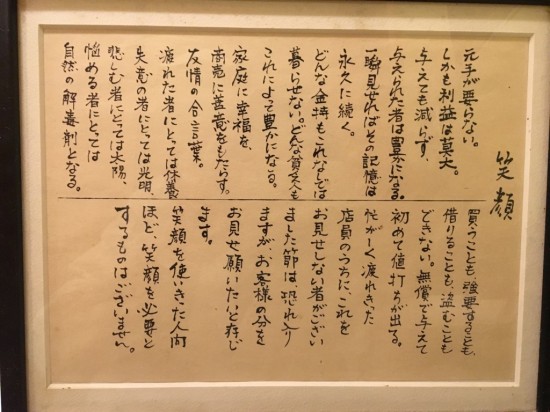 笑顔
元手が要らない。
しかも利益は莫大。
与えても減らず、
与えられた者は豊かになる。
一瞬見せればその記憶は
永久に続く。
どんな金持もこれなしでは
暮らせない。どんな貧乏人も
これによって豊かになる。
家庭に幸福を、
商売に善意をもたらす。
友情の合言葉。
疲れた者にとっては休養
失意の者にとっては光明、
悲しむ者にとっては太陽、
悩める者にとっては
自然の解毒剤となる。
買うことも、強要することも、
借りることも、盗むことも
できない。無償で与えて
初めて値打ちが出る。
忙がしく疲れきった
店員のうちに、これを
お見せしない者がござい
ました節は、恐れ入り
ますが、お客様の分を
お見せ願いたいと存じ
ます。
笑顔を使いきた人間
ほど、笑顔を必要と
するものはございません。